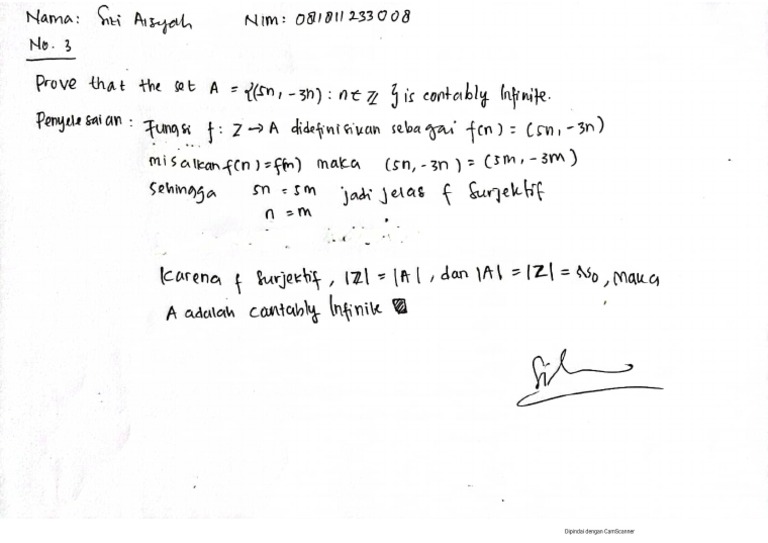 Nama: Siti Aisyah Nim: 081811233008
No. 3
Prove that the set A = {(5n, -3n) : n ∈ ℤ } is contably Infinite.
Penyelesaian : Fungsi f : Z → A didefinisikan sebagai f(n) = (5n, -3n)
misalkan f(n) = f(m) maka (5n, -3n) = (5m, -3m)
Sehingga 5n = 5m jadi jelas f Surjektif
n = m
Karena f Surjektif, |Z| = |A|, dan |A| = |Z| = ℵ0, maka
A adalah cantably Infinite
Dipindai dengan CamScanner